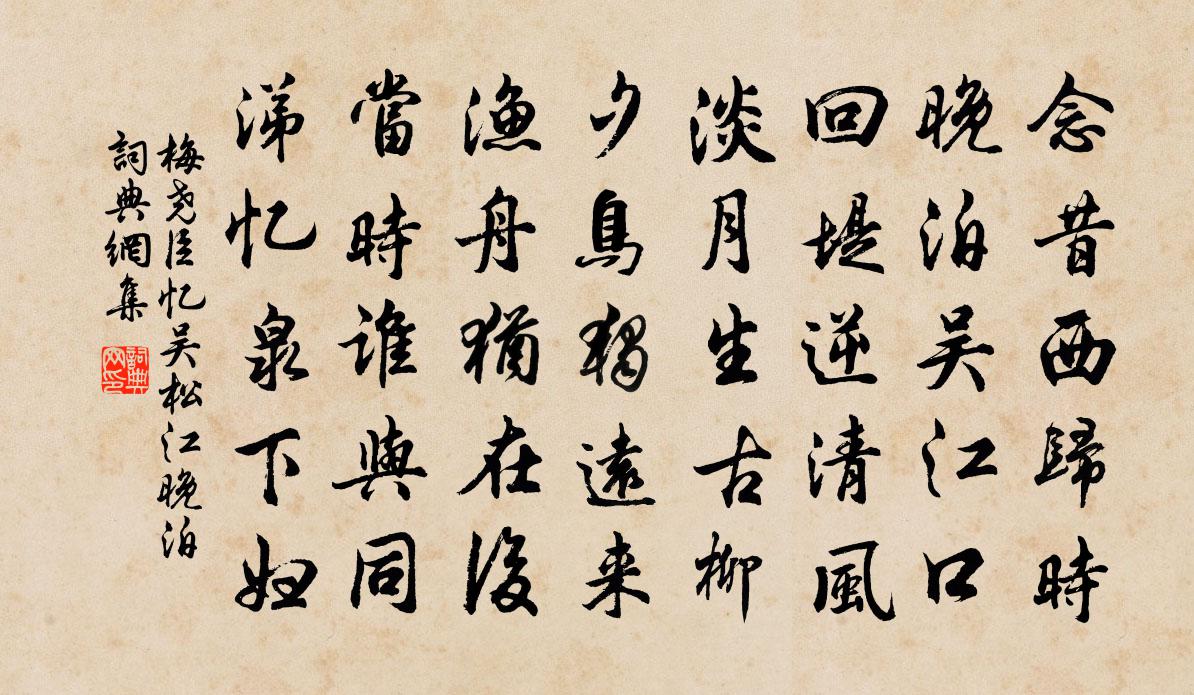 念昔西歸時
晚泊吴江口
回堤逆清風
淡月生古柳
夕鳥獨遠来
漁舟猶在後
當時誰與同
涕忆泉下妇
梅尧臣忆吴松江晚泊
詞典網集
詞典
网印